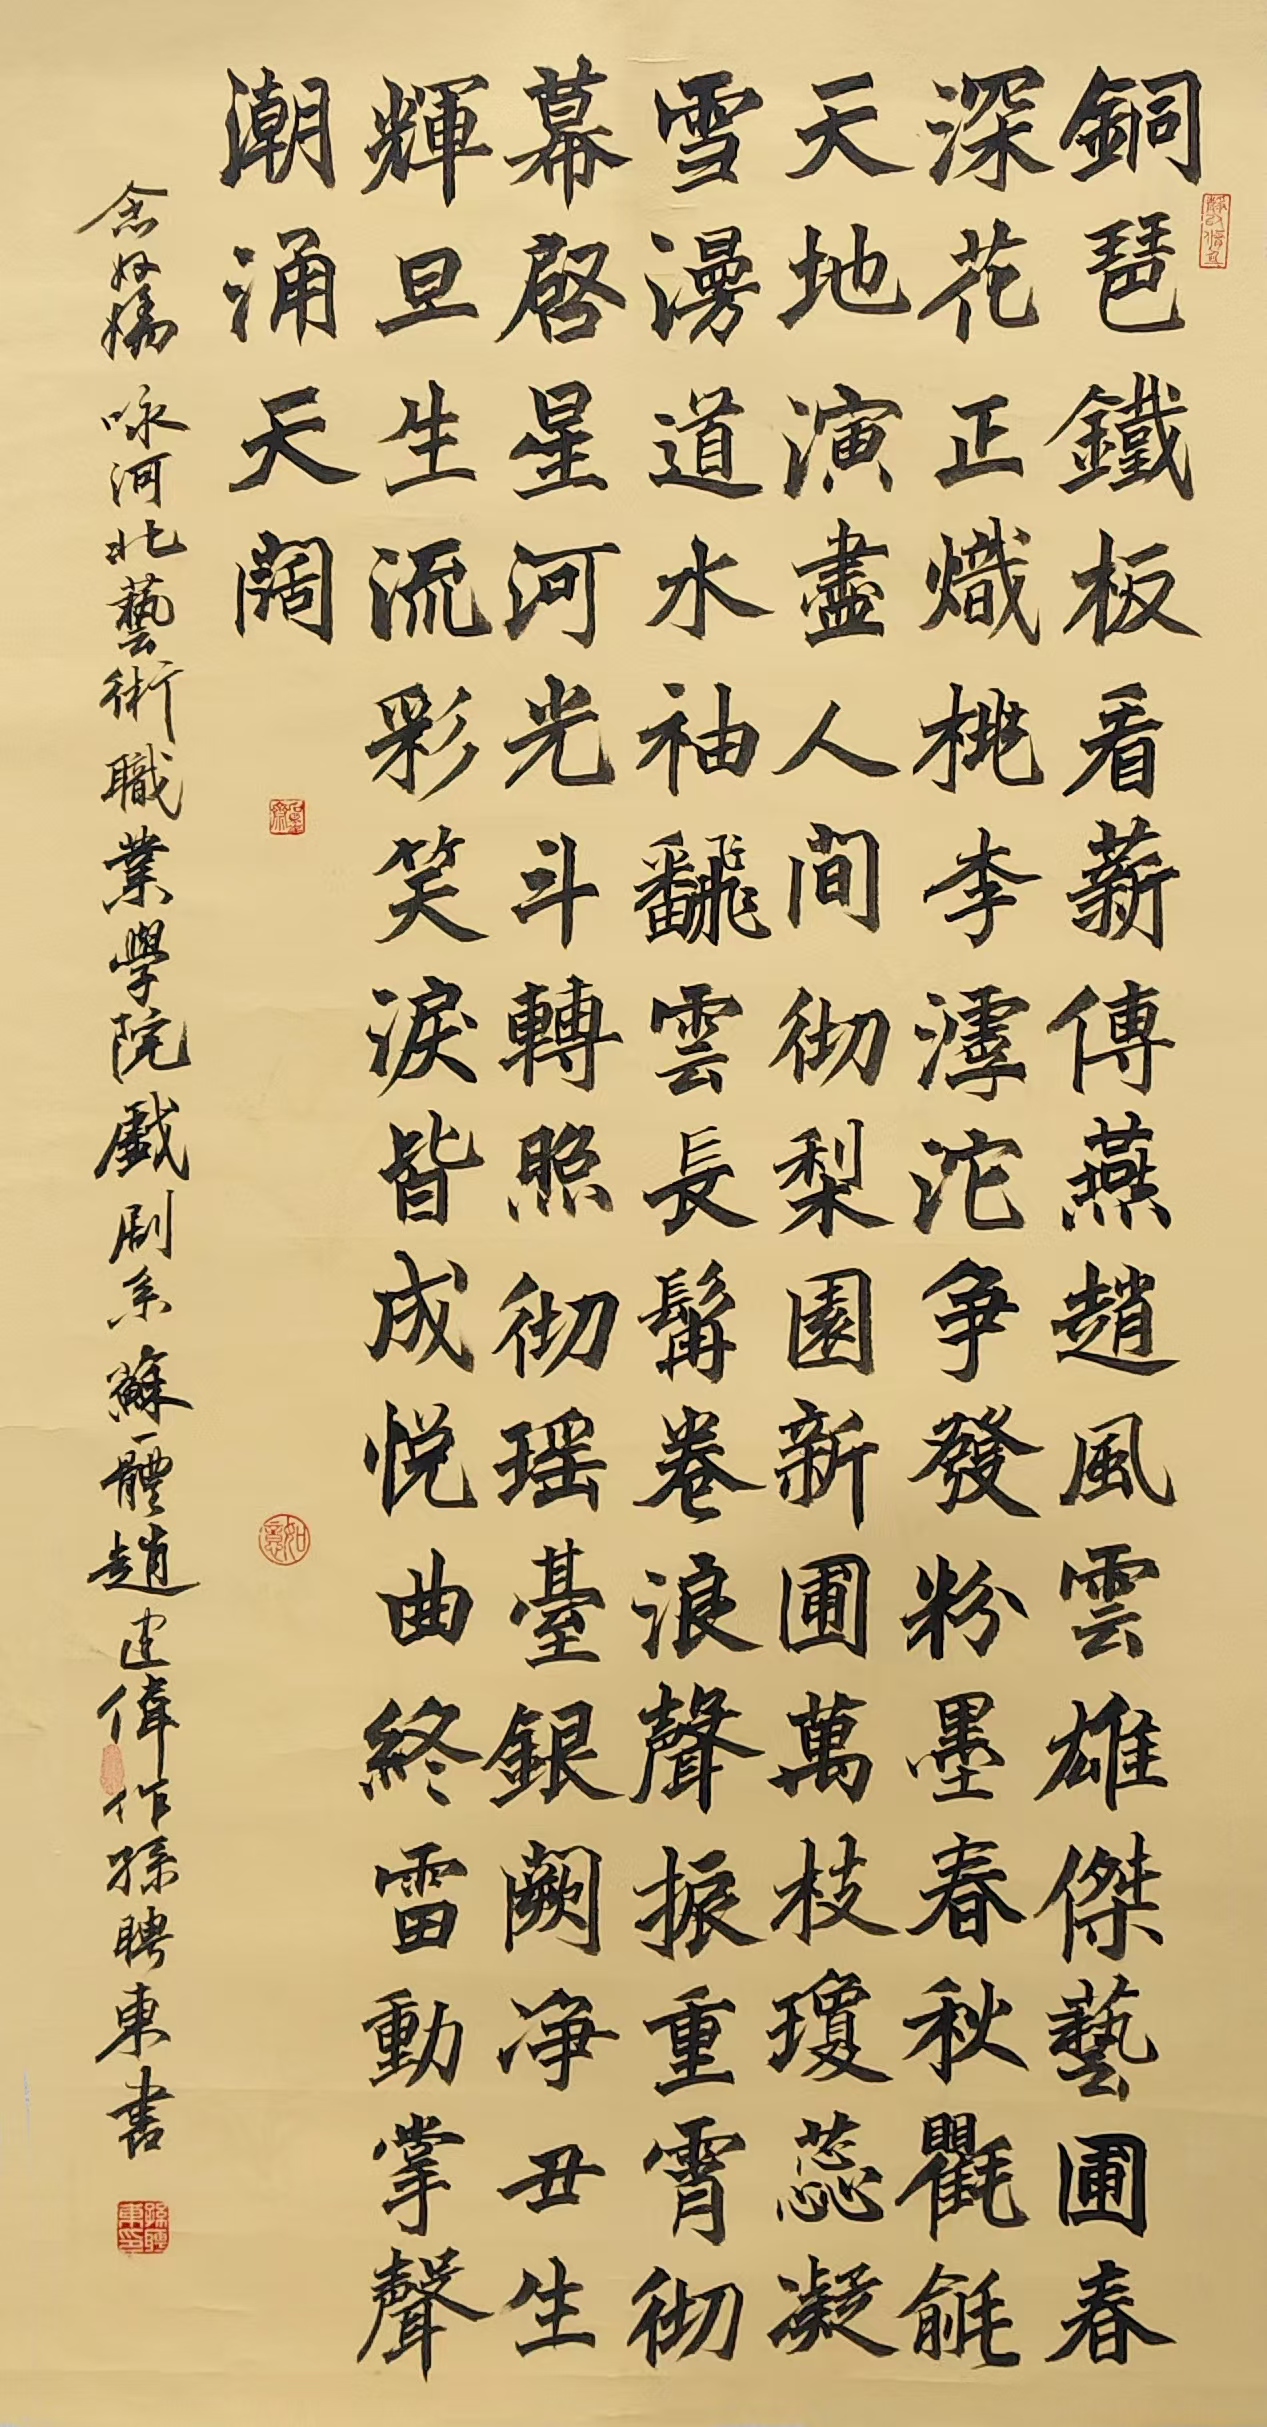 銅琶鐵板看薪傳燕趙風雲雄傑藝圃春
深花正熾桃李滹沱爭發粉墨春秋氍毹
天地演盡人間彻梨園新圃萬枝瓊蕊凝
雪漫道水袖飜雲長髯卷浪聲振重霄彻
幕啓星河光斗轉照彻瑶臺銀闕净丑生
輝旦生流彩笑淚皆成悦曲終雷動掌聲
潮涌天闊
念奴嬌 咏河北藝術職業學院戲劇系 蘇體趙建偉作孫聘東書
如意
孫聘東印